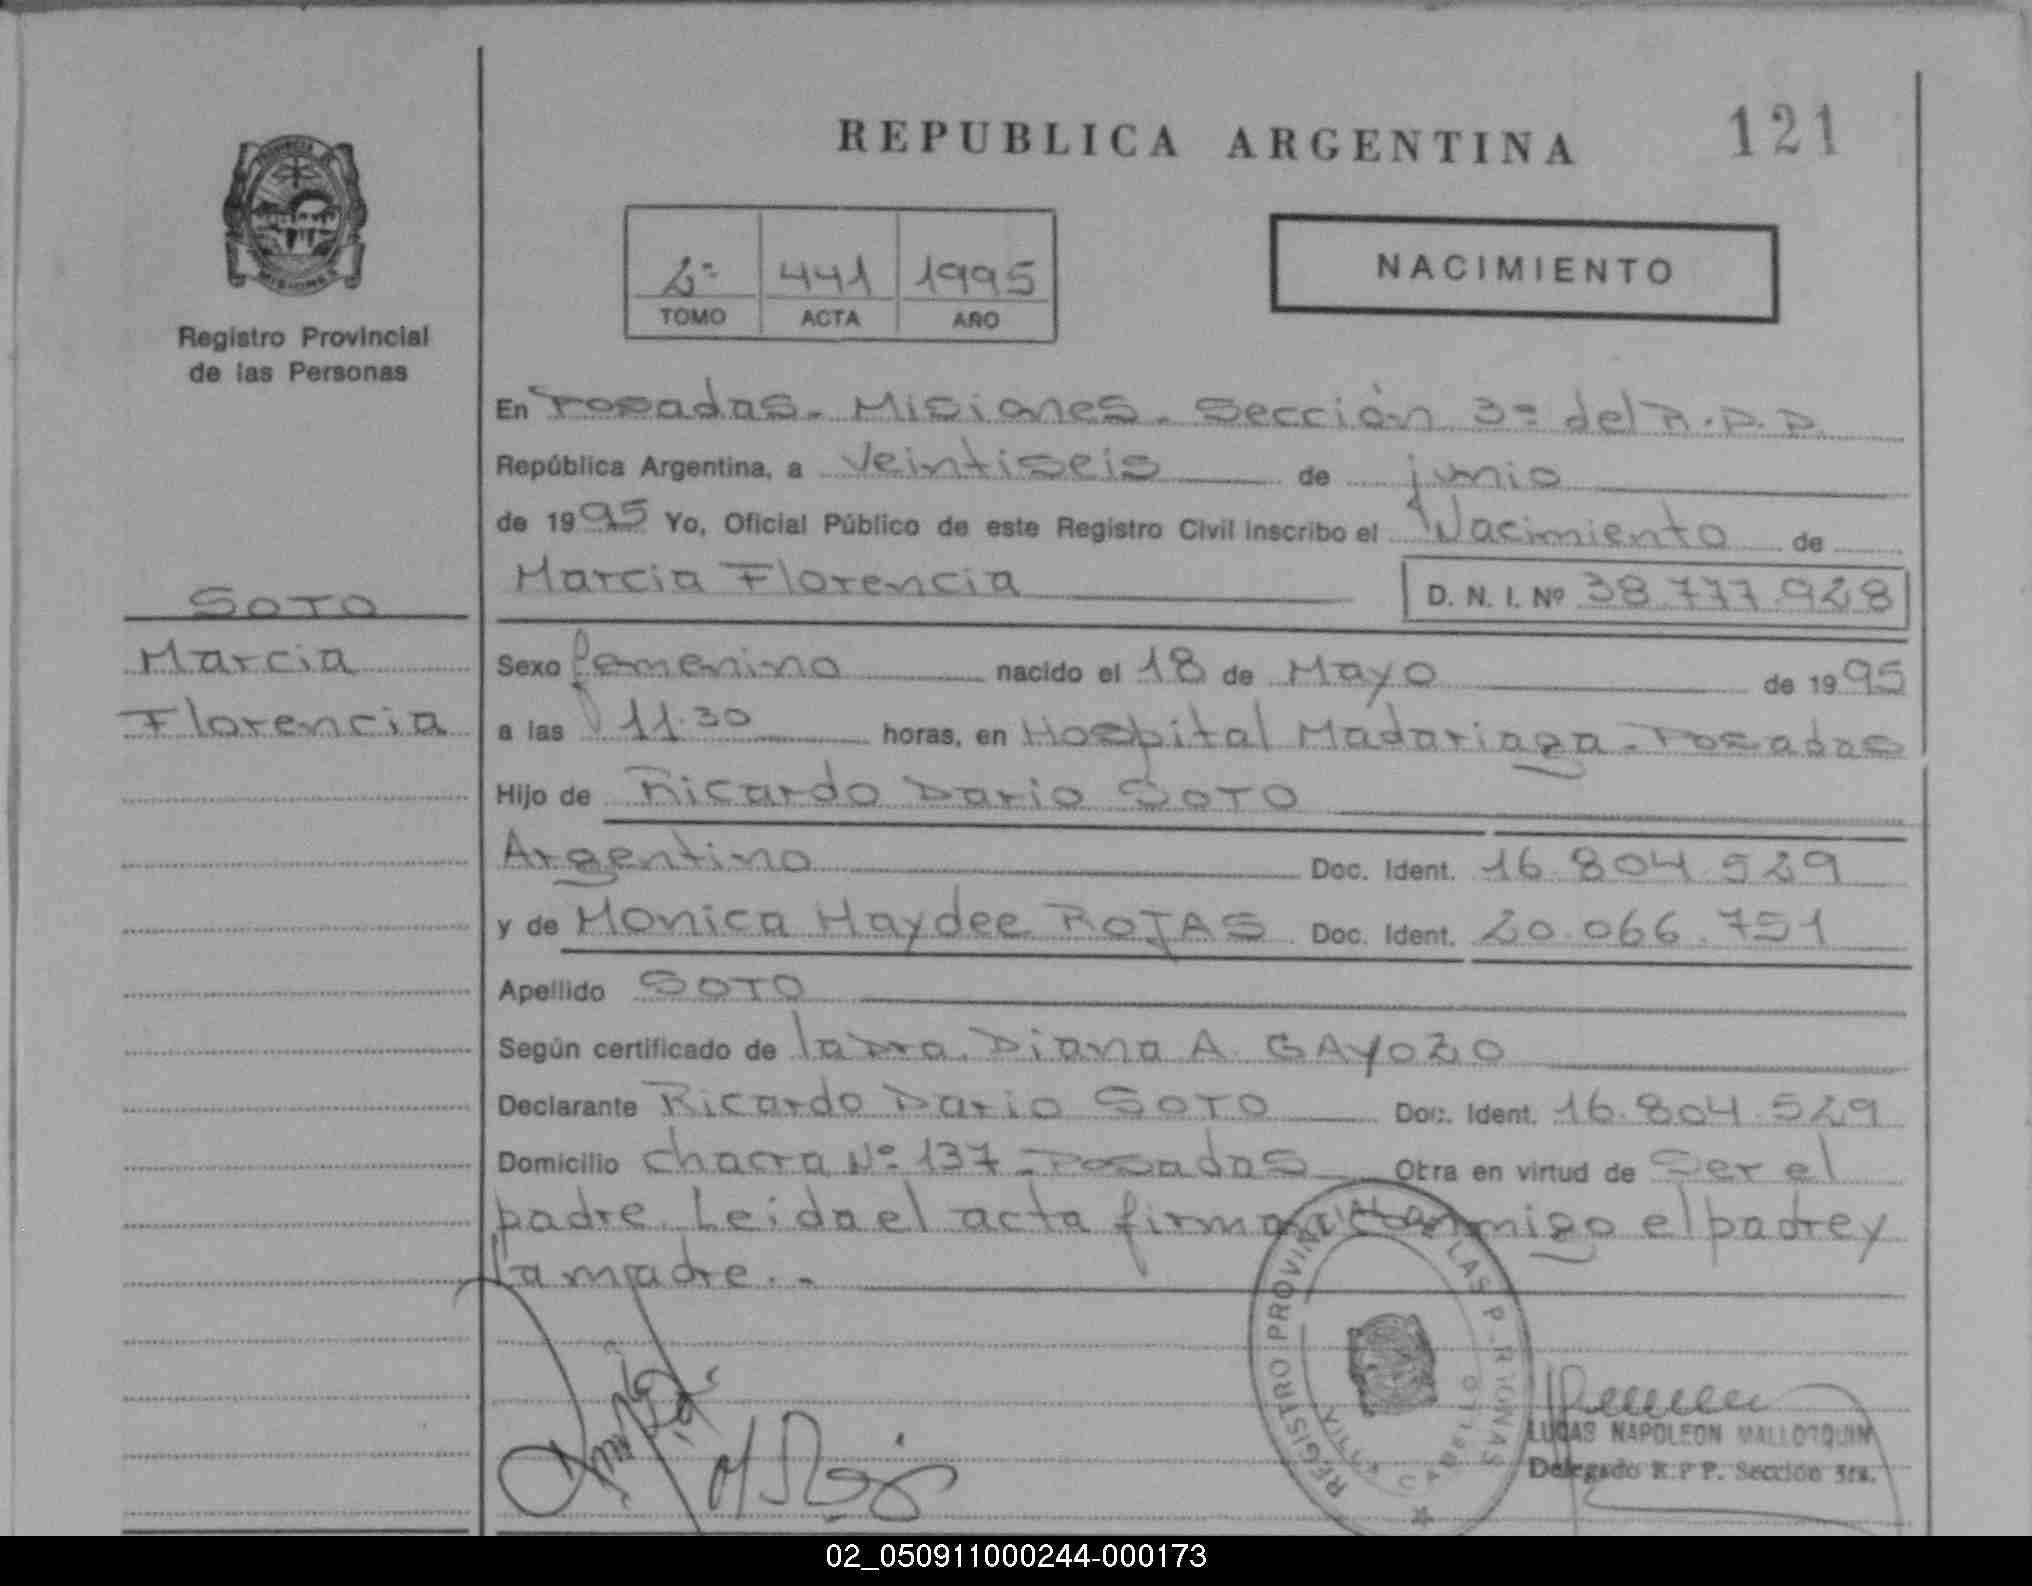 REPUBLICA ARGENTINA
121
PROVINCIA DE
MISIONES
Registro Provincial
de las Personas
2º 441 1995
TOMO ACTA AÑO
NACIMIENTO
En Posadas. Misiones. Sección 3º del R.P.P.
República Argentina, a Veintiseis de junio
de 1995 Yo, Oficial Público de este Registro Civil inscribo el Nacimiento de
Marcia Florencia D. N. I. Nº 38.777.928
SOTO
Marcia
Florencia
Sexo femenino nacido el 18 de Mayo de 1995
a las 11.30 horas, en Hospital Madariaga. Posadas
Hijo de Ricardo Dario SOTO
Argentino Doc. Ident. 16.804.529
y de Monica Haydee ROJAS Doc. Ident. 20.066.751
Apellido SOTO
Según certificado de la Dra. Diana A. GAYOZO
Declarante Ricardo Dario SOTO Doc. Ident. 16.804.529
Domicilio chacra Nº 137 - Posadas Obra en virtud de Ser el
padre. Leida el acta firman conmigo el padre y
la madre. -
REGISTRO PROVINCIAL DE LAS PERSONAS
LUCAS NAPOLEON MALLORQUIN
Delegado R.P.P. Sección 3ra.
02_050911000244-000173